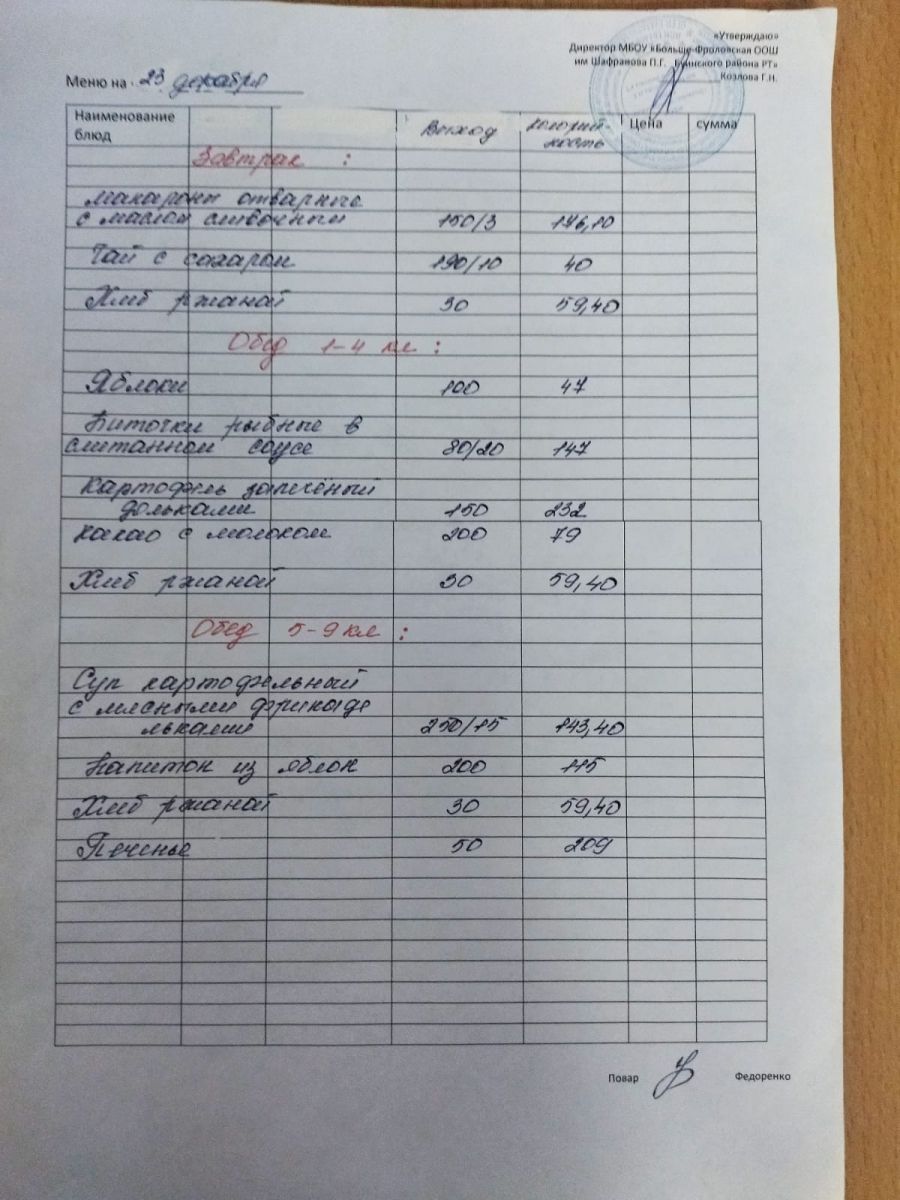 «Утверждаю»
Директор МБОУ «Больше-Фроловская ООШ
им Шафранова П.Г. Буинского района РТ»
Козлова Г.Н.
Меню на 23 декабря
Наименование блюд Выход Цена сумма
Завтрак :
макароны отварные
с маслом сливочным 150/3 176,10
Чай с сахаром 190/10 40
Хлеб ржаной 30 59,40
Обед 1-4 кл :
Яблоки 100 47
Биточки рыбные в
сметанном соусе 80/20 147
Картофель запечёный
дольками 150 232
Какао с молоком 200 79
Хлеб ржаной 30 59,40
Обед 5-9 кл :
Суп картофельный
с мясными фрикаде
льками 250/15 143,40
Напиток из яблок 200 115
Хлеб ржаной 30 59,40
Печенье 50 209
Повар Федоренко